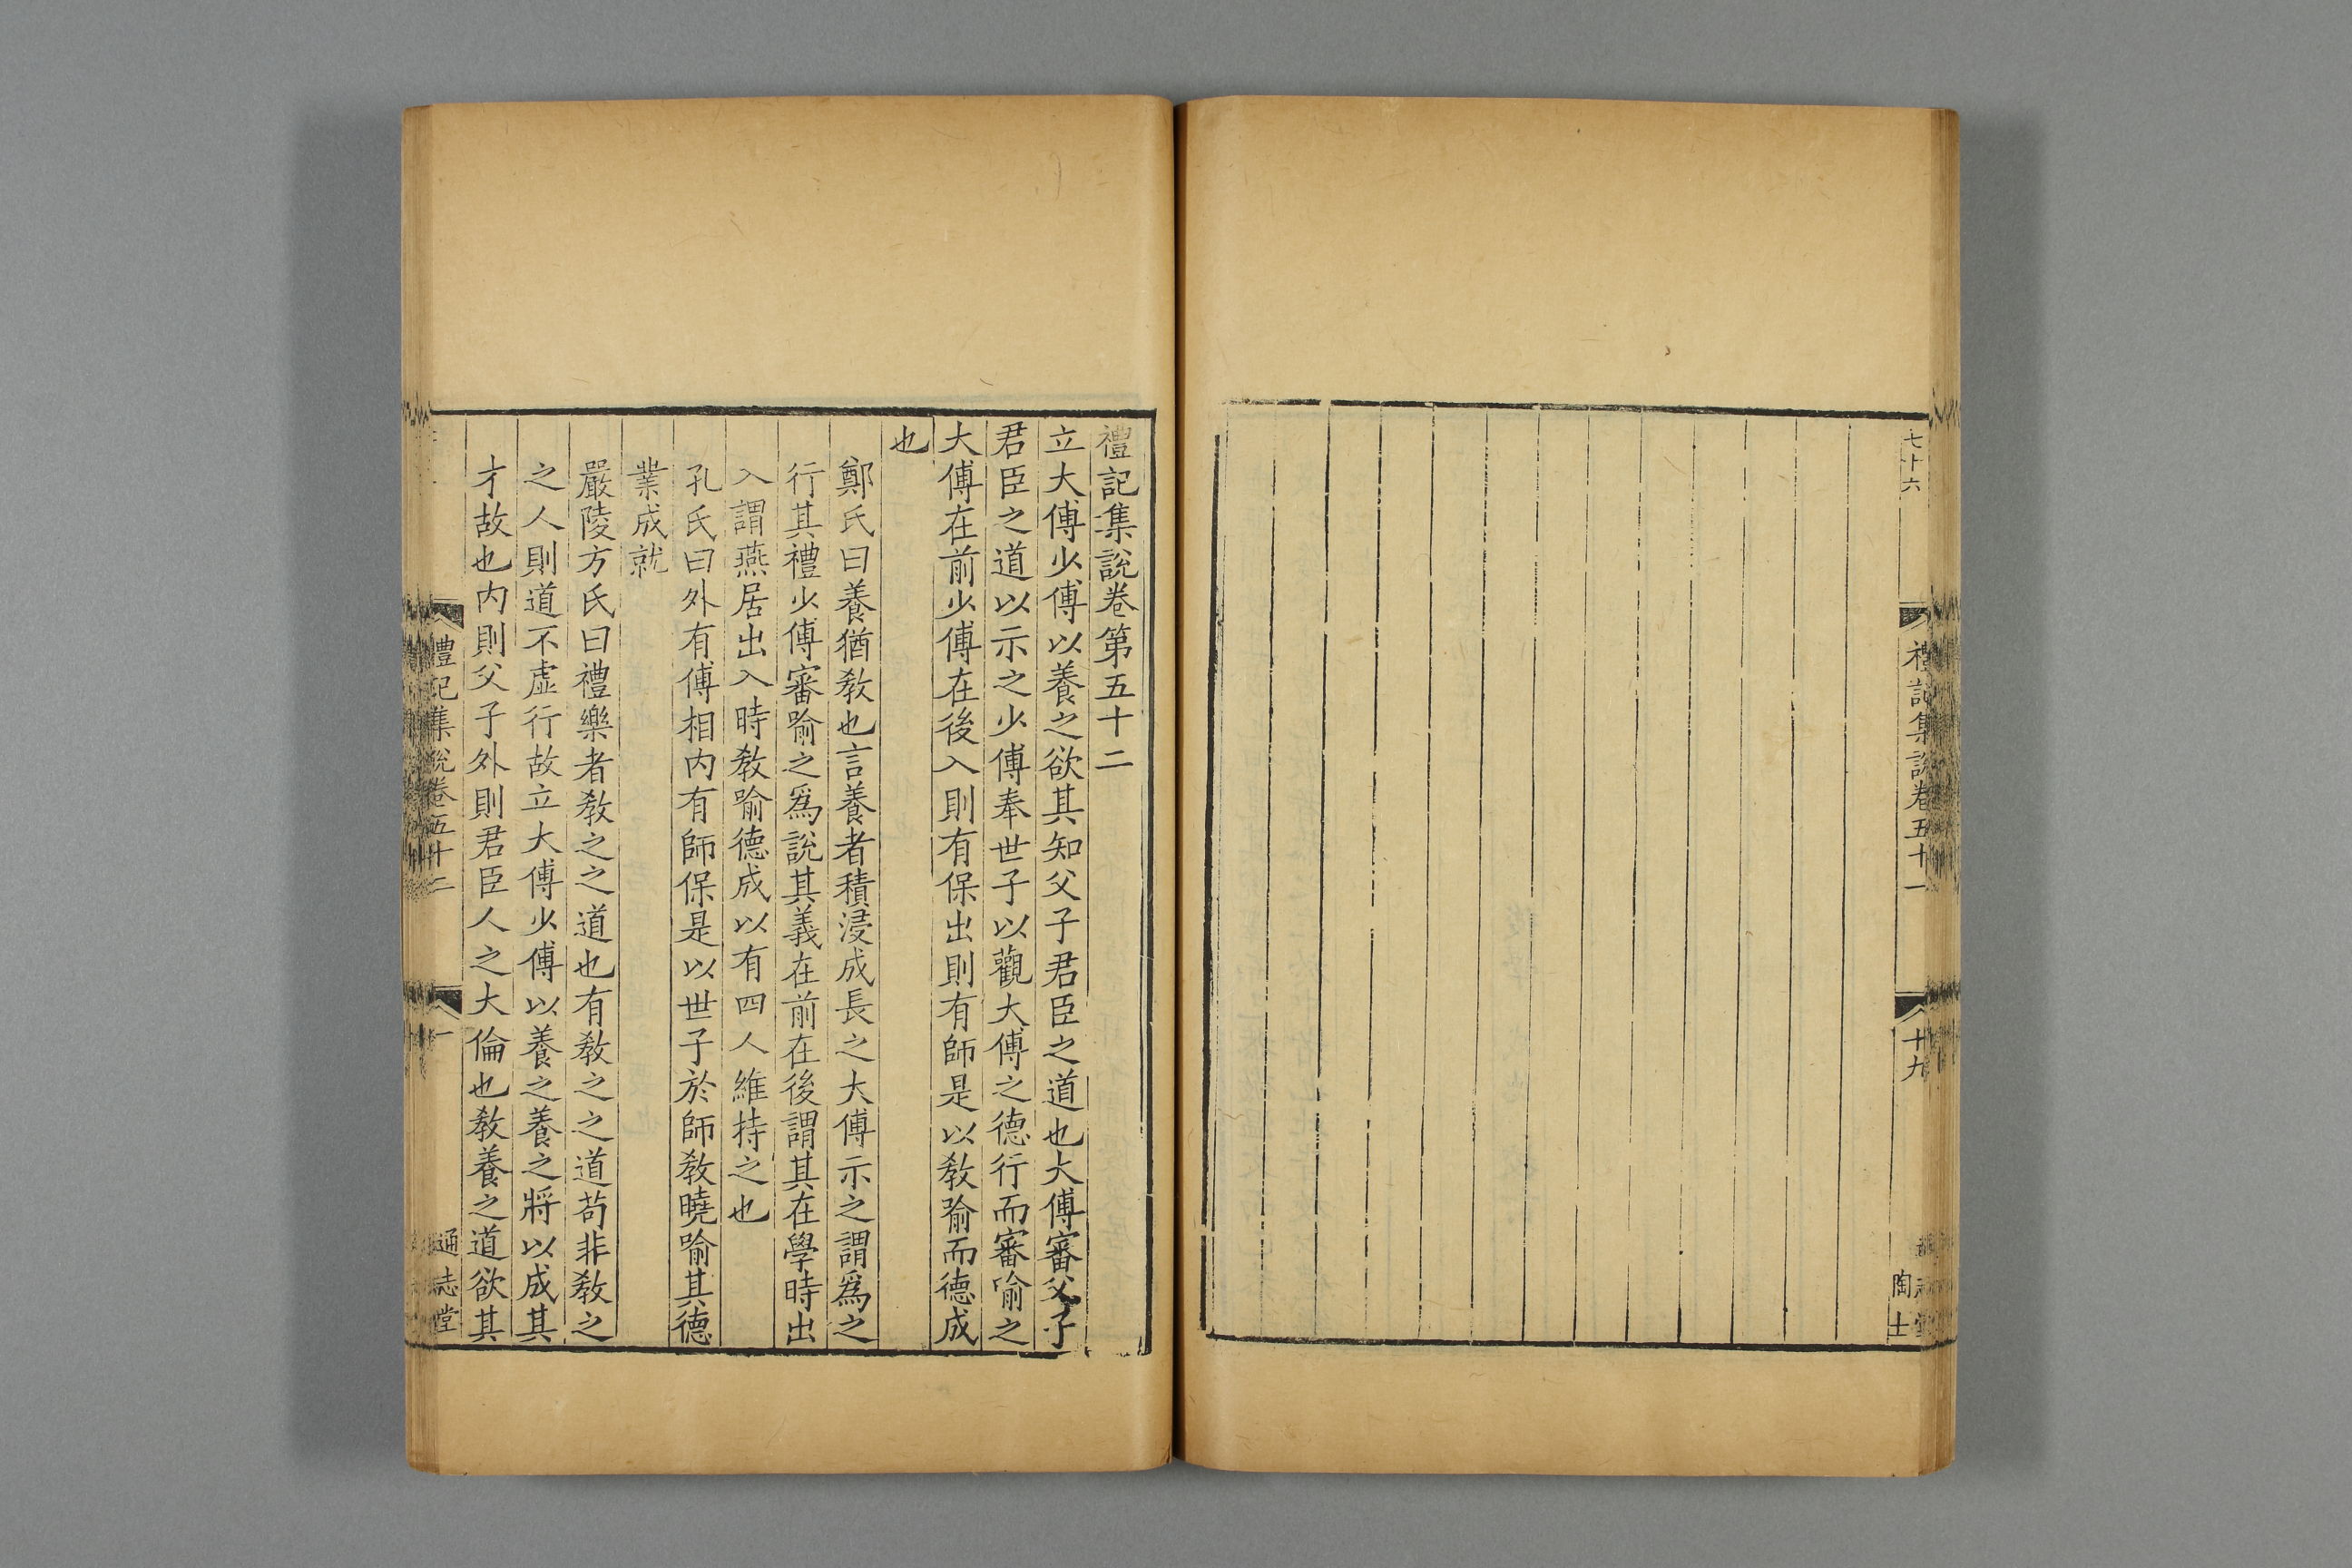 七十六
禮記集説卷五十一
十九
陶士
禮記集説卷第五十二
立大傅少傅以養之欲其知父子君臣之道也大傅審父子
君臣之道以示之少傅奉世子以觀大傅之德行而審喻之
大傅在前少傅在後入則有保出則有師是以教喻而德成
也
鄭氏曰養猶教也言養者積浸成長之大傅示之謂爲之
行其禮少傅審喻之爲説其義在前在後謂其在學時出
入謂燕居出入時教喻德成以有四人維持之也
孔氏曰外有傅相内有師保是以世子於師教曉喻其德
業成就
嚴陵方氏曰禮樂者教之之道也有教之之道苟非教之
之人則道不虛行故立大傅少傅以養之養之將以成其
才故也内則父子外則君臣人之大倫也教養之道欲其
禮記集説卷五十二
一
通志堂